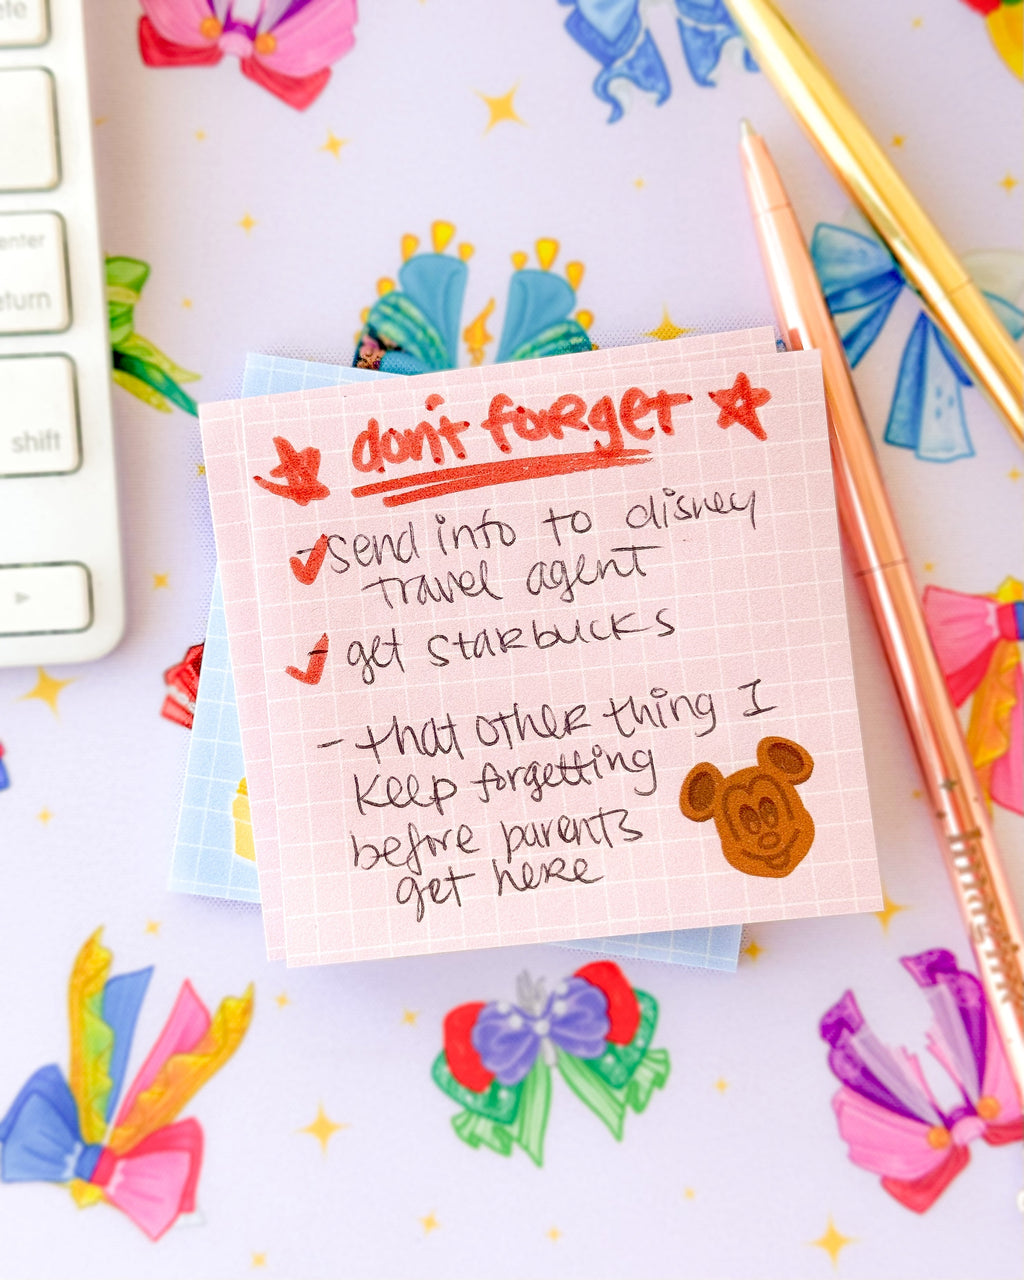 enter
return
shift
don't forget
- send info to disney
travel agent
- get starbucks
- that other thing I
keep forgetting
before parents
get here